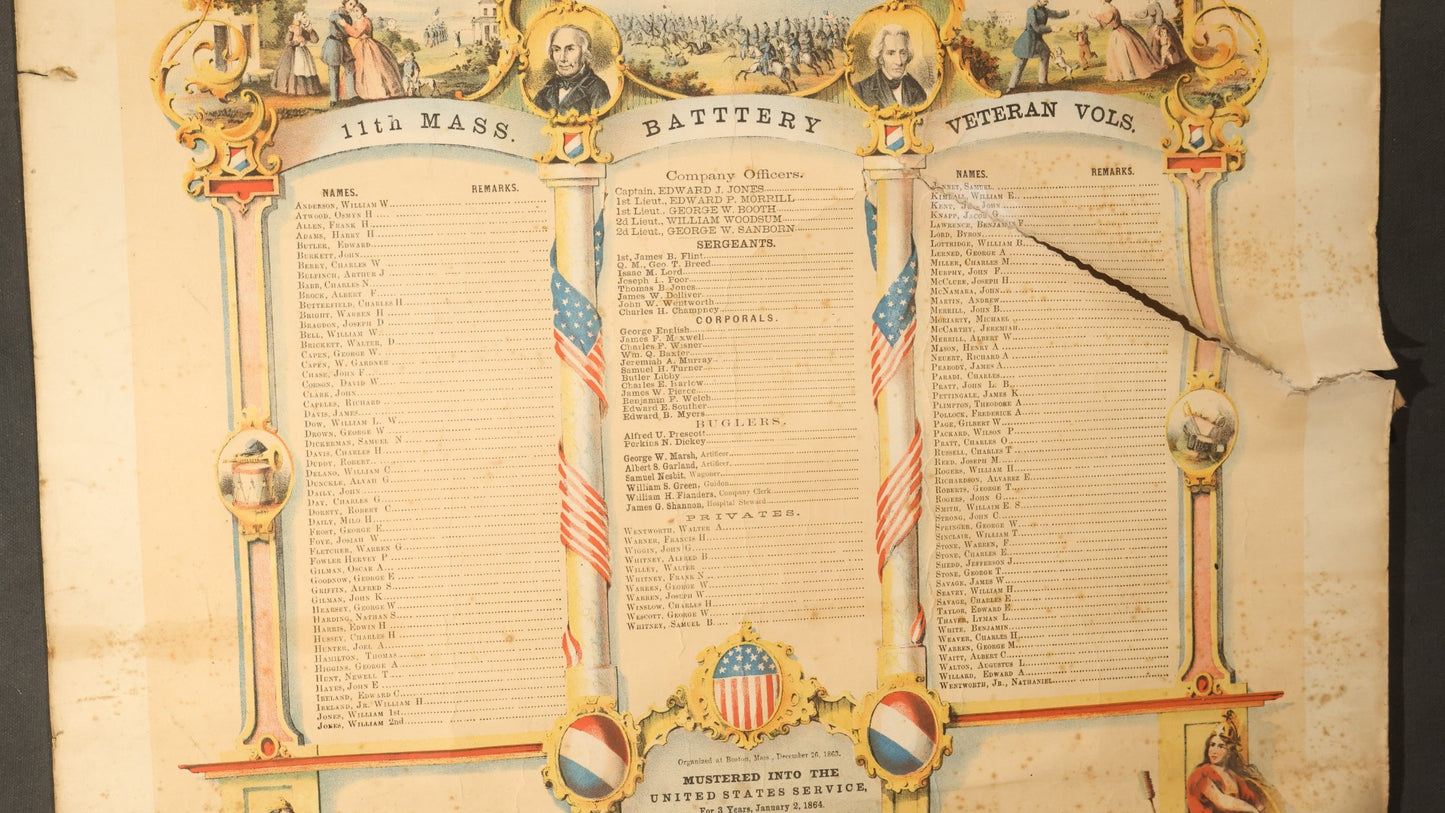 11th MASS. BATTTERY VETERAN VOLS.
NAMES. REMARKS.
ANDERSON, WILLIAM W.
ATWOOD, OSMYN H
ALLEN, FRANK H.
ADAMS, HARRY H
BUTLER, EDWARD.
BURKETT, JOHN.
BERRY, CHARLES W
BULFINCH, ARTHUR J
BABB, CHARLES N
BROCK, ALBERT F
BUTTERFIELD, CHARLES H
BRIGHT, WARREN H
BRAGDON, JOSEPH D
BELL, WILLIAM W.
BRICKETT, WALTER, D.
CAPEN, GEORGE W.
CAPEN, W. GARDNER
CHASE, JOHN F
CORSON, DAVID W
CLARK, JOHN.
CAPELES, RICHARD
DAVIS, JAMES
DOW, WILLIAM L. W
DROWN, GEORGE W
DICKERMAN, SAMUEL N
DAVIS, CHARLES H
DUDDY, ROBERT
DELANO, WILLIAM C
DUNCKLE, ALVAD G
DAILY, JOHN
DAY, CHARLES G
DORETY, ROBERT C
DAILY, MILO H
FROST, GEORGE E
FOYE, JOSIAH W
FLETCHER, WARREN G
FOWLER HERVEY P
GILMAN, OSCAR A
GOODNOW, GEORGE E
GRIFFIN, ALFRED S
GILMAN, JOHN K
HEARSEY, GEORGE W
HARDING, NATHAN S
HARRIS, EDWIN H
HUSSEY, CHARLES H
HUNTER, JOEL A.
HAMILTON, THOMAS
HIGGINS, GEORGE A
HUNT, NEWELL T
HAYES, JOHN E
IRELAND, EDWARD C.
IRELAND, JR. WILLIAM H
JONES, WILLIAM 1st.
JONES, WILLIAM 2nd
Company Officers.
Captain, EDWARD J. JONES
1st Lieut., EDWARD P. MORRILL
1st Lieut., GEORGE W. BOOTH
2d Lieut., WILLIAM WOODSUM
2d Lieut., GEORGE W. SANBORN
SERGEANTS.
1st, James B. Flint
Q. M., Geo. T. Breed
Isaac M. Lord
Joseph L. Poor
Thomas B. Jones
James W. Dolliver
John W. Wentworth
Charles H. Champney
CORPORALS.
George English
James F. Maxwell
Charles F. Wisner
Wm. Q. Baxter
Jeremiah A. Murray
Samuel H. Turner
Butler Libby
Charles E. Harlow
James W. Pierce
Benjamin F. Welch
Edward E. Souther
Edward B. Myers
BUGLERS.
Alfred U. Prescott
Perkins N. Dickey
George W. Marsh, Artificer
Albert S. Garland, Artificer
Samuel Nesbit, Wagoner
William S. Green, Guidon
William H. Flanders, Company Clerk
James G. Shannon, Hospital Steward
PRIVATES.
WENTWORTH, WALTER A
WARNER, FRANCIS H
WIGGIN, JOHN G
WHITNEY, ALFRED B
WILLEY, WALTER
WHITNEY, FRANK N
WARREN, GEORGE W
WARREN, JOSEPH W
WINSLOW, CHARLES H
WESCOTT, GEORGE W
WHITNEY, SAMUEL B.
NAMES. REMARKS.
SAMUEL
KIMBALL, WILLIAM E
KENT, JR. JOHN
KNAPP, JACOB G
LAWRENCE, BENJAMIN F
LORD, BYRON
LOTTRIDGE, WILLIAM B
LERNED, GEORGE A
MILLER, CHARLES M
MURPHY, JOHN F
MCCLURE, JOSEPH H
MCNAMARA, JOHN
MARTIN, ANDREW
MERRILL, JOHN B
MORIARTY, MICHAEL
MCCARTHY, JEREMIAH
MERRILL, ALBERT W
MASON, HENRY A
NEUERT, RICHARD A
PEABODY, JAMES A
PARADI, CHARLES
PRATT, JOHN L. B.
PETTINGALE, JAMES K
PLIMPTON, THEODORE A
POLLOCK, FREDERICK A
PAGE, GILBERT W
PACKARD, WILSON P
PRATT, CHARLES O
RUSSELL, CHARLES T
REED, JOSEPH M
ROGERS, WILLIAM H
RICHARDSON, ALVAREZ E
ROBERTS, GEORGE T
ROGERS, JOHN G
SMITH, WILLAIM E. S
STRONG, JOHN C
SPRINGER, GEORGE W
SINCLAIR, WILLIAM T
STONE, WARREN, F
STONE, CHARLES E
SHEDD, JEFFERSON J
STONE, GEORGE T
SAVAGE, JAMES W
SEAVEY, WILLIAM H
SAVAGE, CHARLES E
TAYLOR, EDWARD E
THAYER, LYMAN L
WHITE, BENJAMIN
WEAVER, CHARLES H,
WARREN, GEORGE M
WAITT, ALBERT C
WALTON, AUGUSTUS L
WILLARD, EDWARD A
WENTWORTH, JR., NATHANIEL
Organized at Boston, Mass., December 26, 1863.
MUSTERED INTO THE
UNITED STATES SERVICE,
For 3 Years, January 2, 1864.